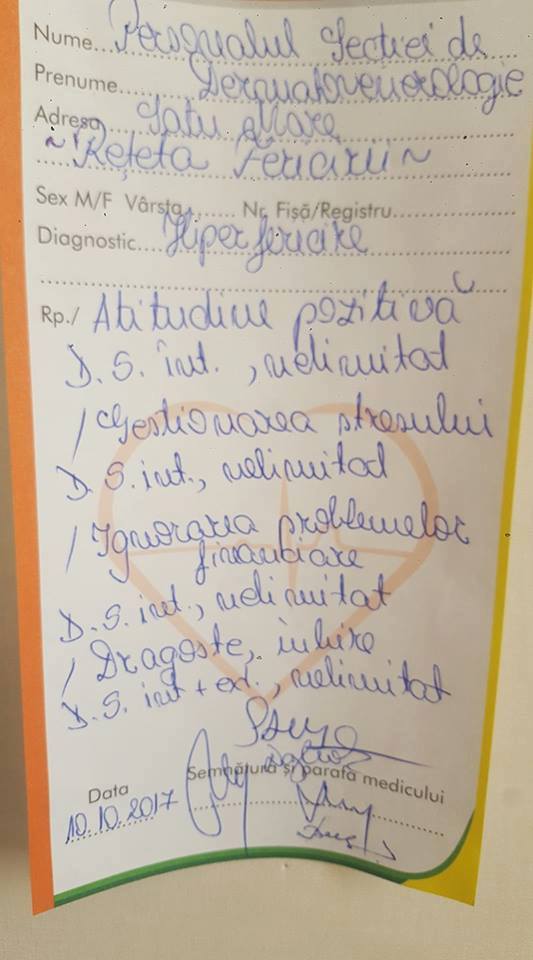 Nume... Personalul Secției de
Prenume... Dermatovenerologie
Adresa... Satu Mare
~ Rețeta Fericirii ~
Sex M/F Vârsta....... Nr. Fișă/Registru.......................
Diagnostic.... Hiperfericire
Rp./ Atitudine pozitivă
D.S. int., nelimitat
/ Gestionarea stresului
D.S. int., nelimitat
/ Ignorarea problemelor
financiare
D.S. int., nelimitat
/ Dragoste, iubire
D.S. int + ext., nelimitat
Semnătura și parafa medicului
Data
10.10.2017